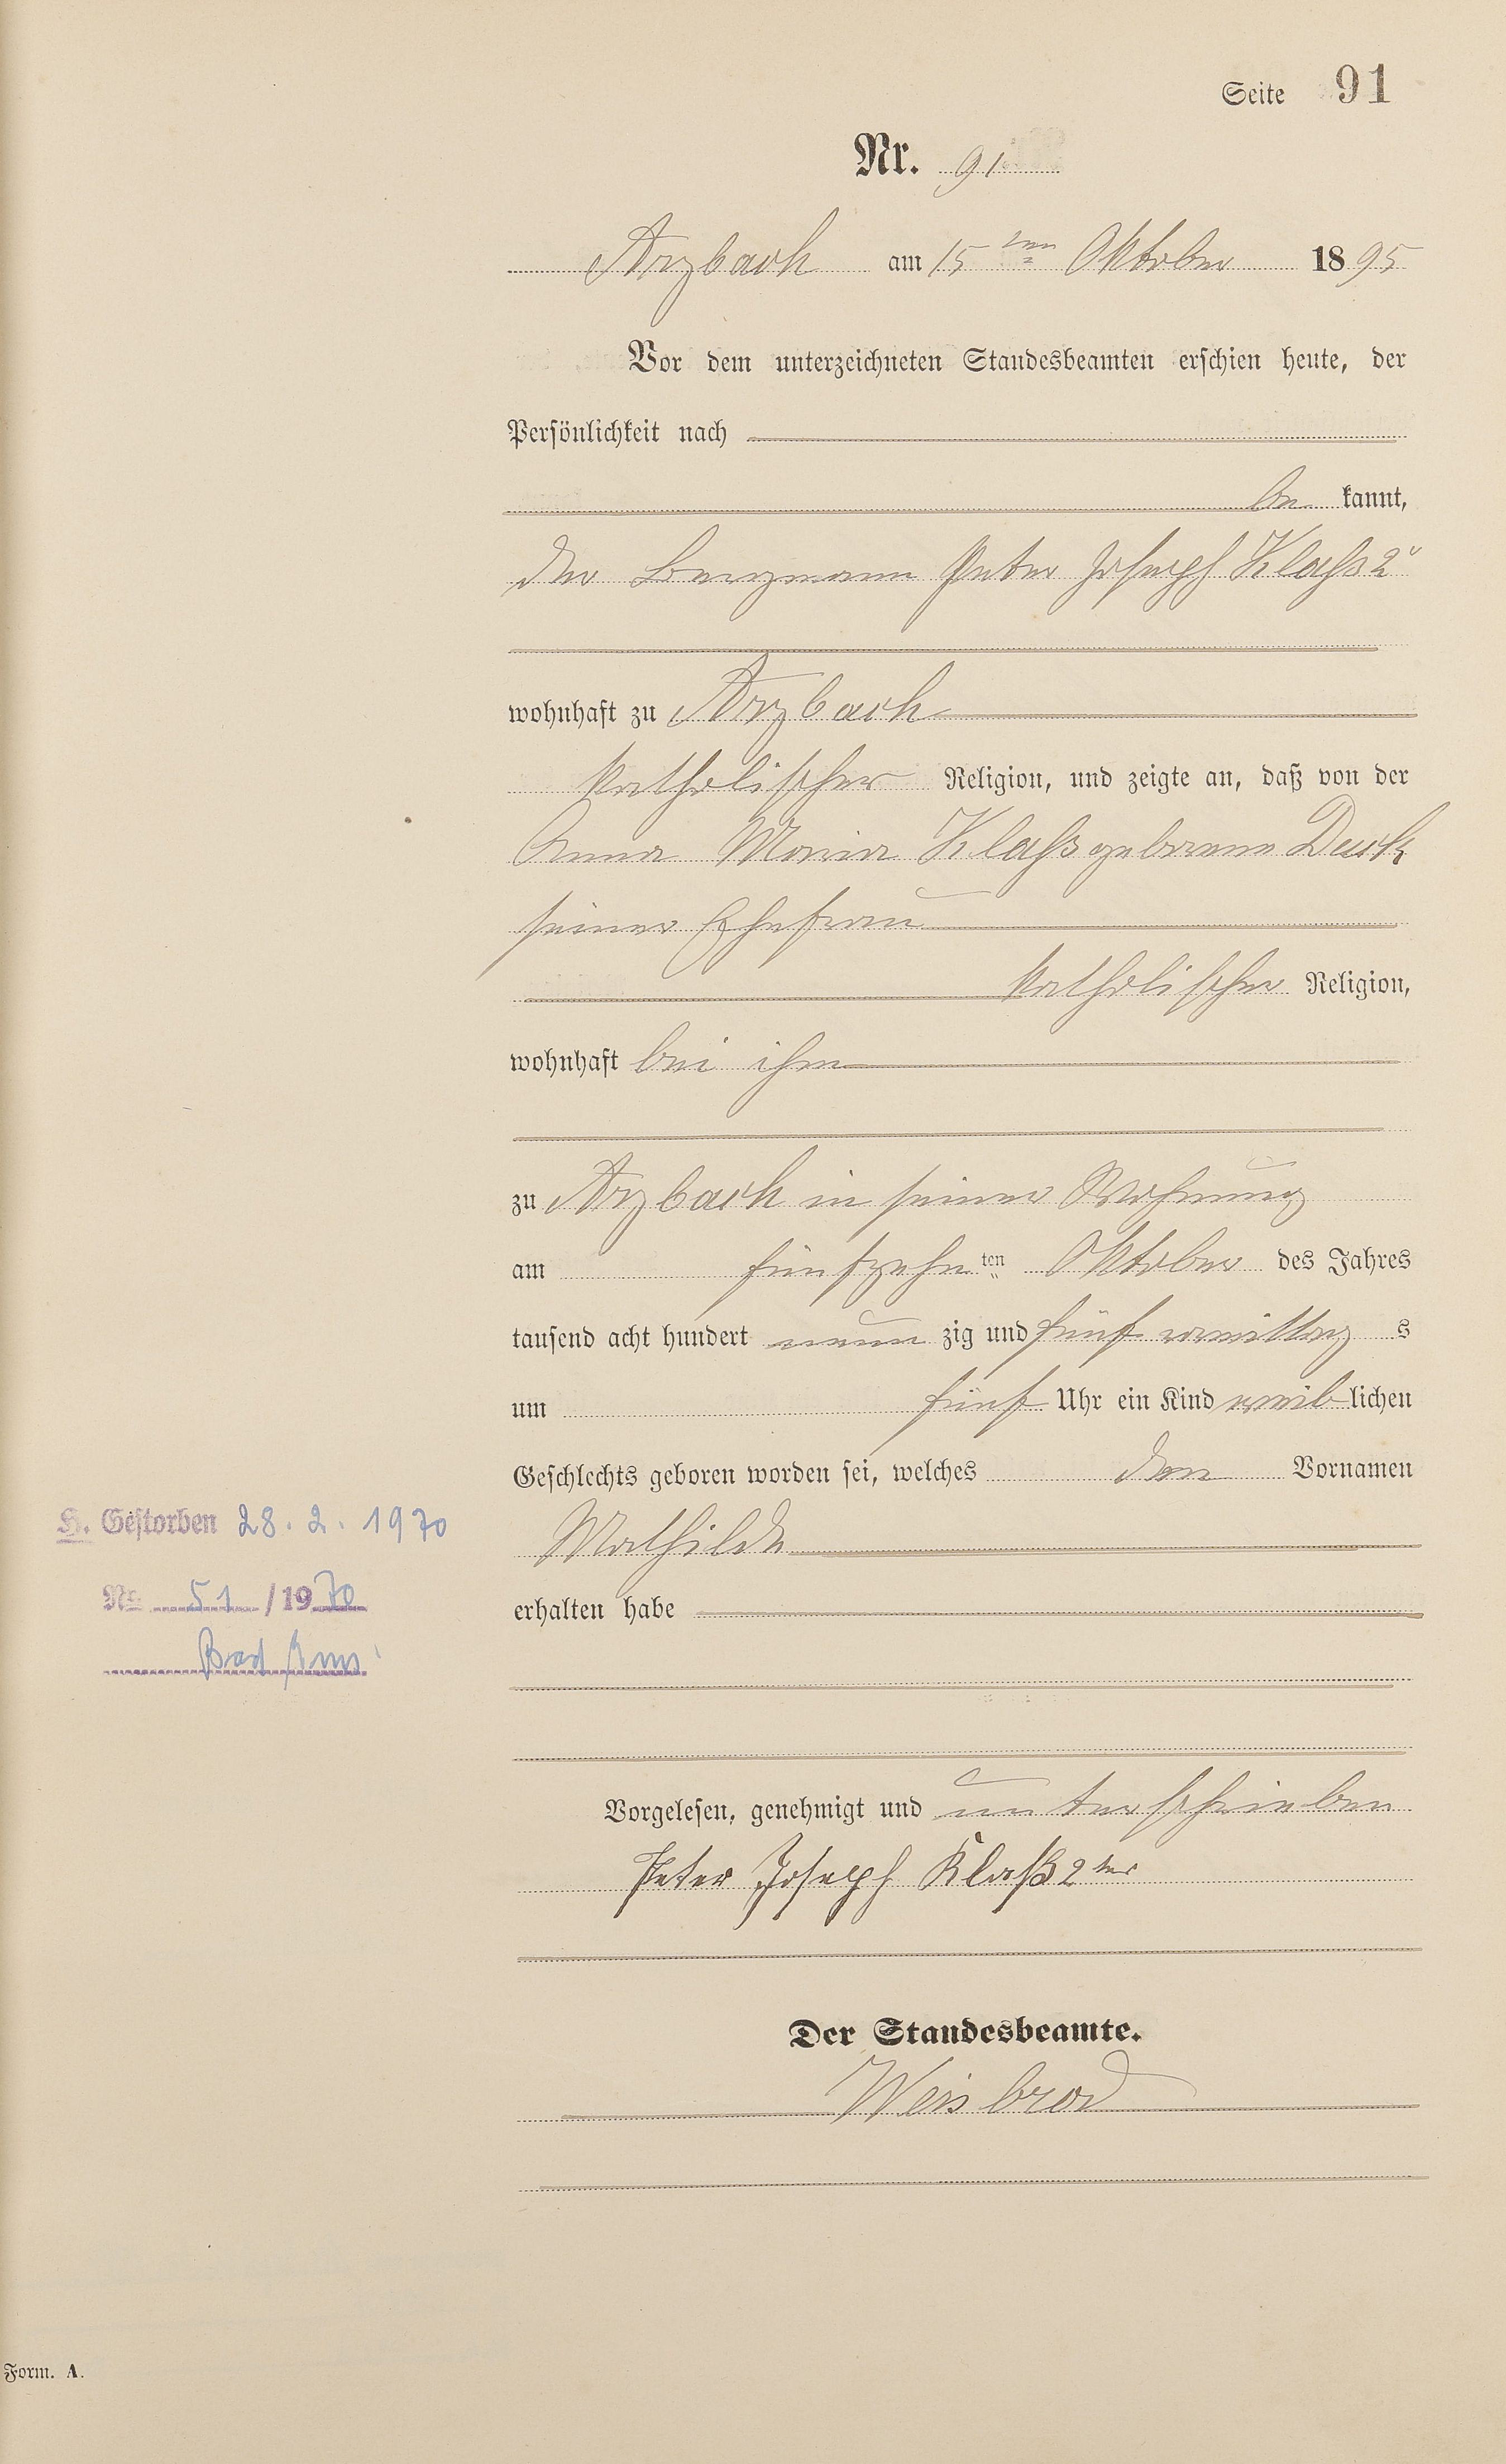 Seite 91
Nr. 91
Arzbach am 15ten Oktober 1895
Vor dem unterzeichneten Standesbeamten erschien heute, der
Persönlichkeit nach
be kannt,
der Bergmann Peter Joseph Klaß 2r
wohnhaft zu Arzbach
katholischer Religion, und zeigte an, daß von der
Anna Maria Klaß geborene
seiner Ehefrau
katholischer Religion,
wohnhaft bei ihm
zu Arzbach in seiner Wohnung
am fünfzehn ten Oktober des Jahres
tausend acht hundert neun zig und fünf vormittag s
um fünf Uhr ein Kind weiblichen
Geschlechts geboren worden sei, welches den Vornamen
Mathilde
H. Gestorben 28. 2. 1970
Nr. 51 /1970
Bad Ems
erhalten habe
Vorgelesen, genehmigt und unterschrieben
Peter Joseph Klaß 2ter
Der Standesbeamte.
Weisbrod
Form. A.